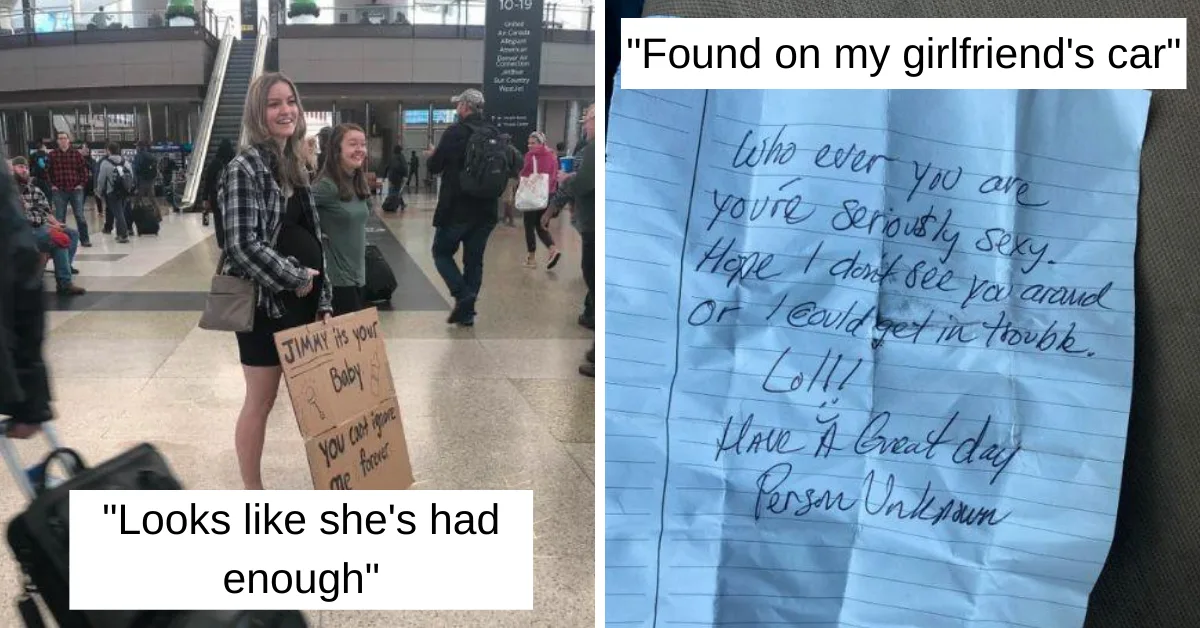 10-19
United
Air Canada
Allegiant
American
Denver Air
Connection
JetBlue
Sun Country
WestJet
JIMMY its your
Baby
you can't ignore
me forever
"Looks like she's had
enough"
"Found on my girlfriend's car"
Who ever you are
you're seriously sexy.
Hope I don't see you around
Or I could get in trouble.
Lol!!!
Have A Great day
Person Unknown